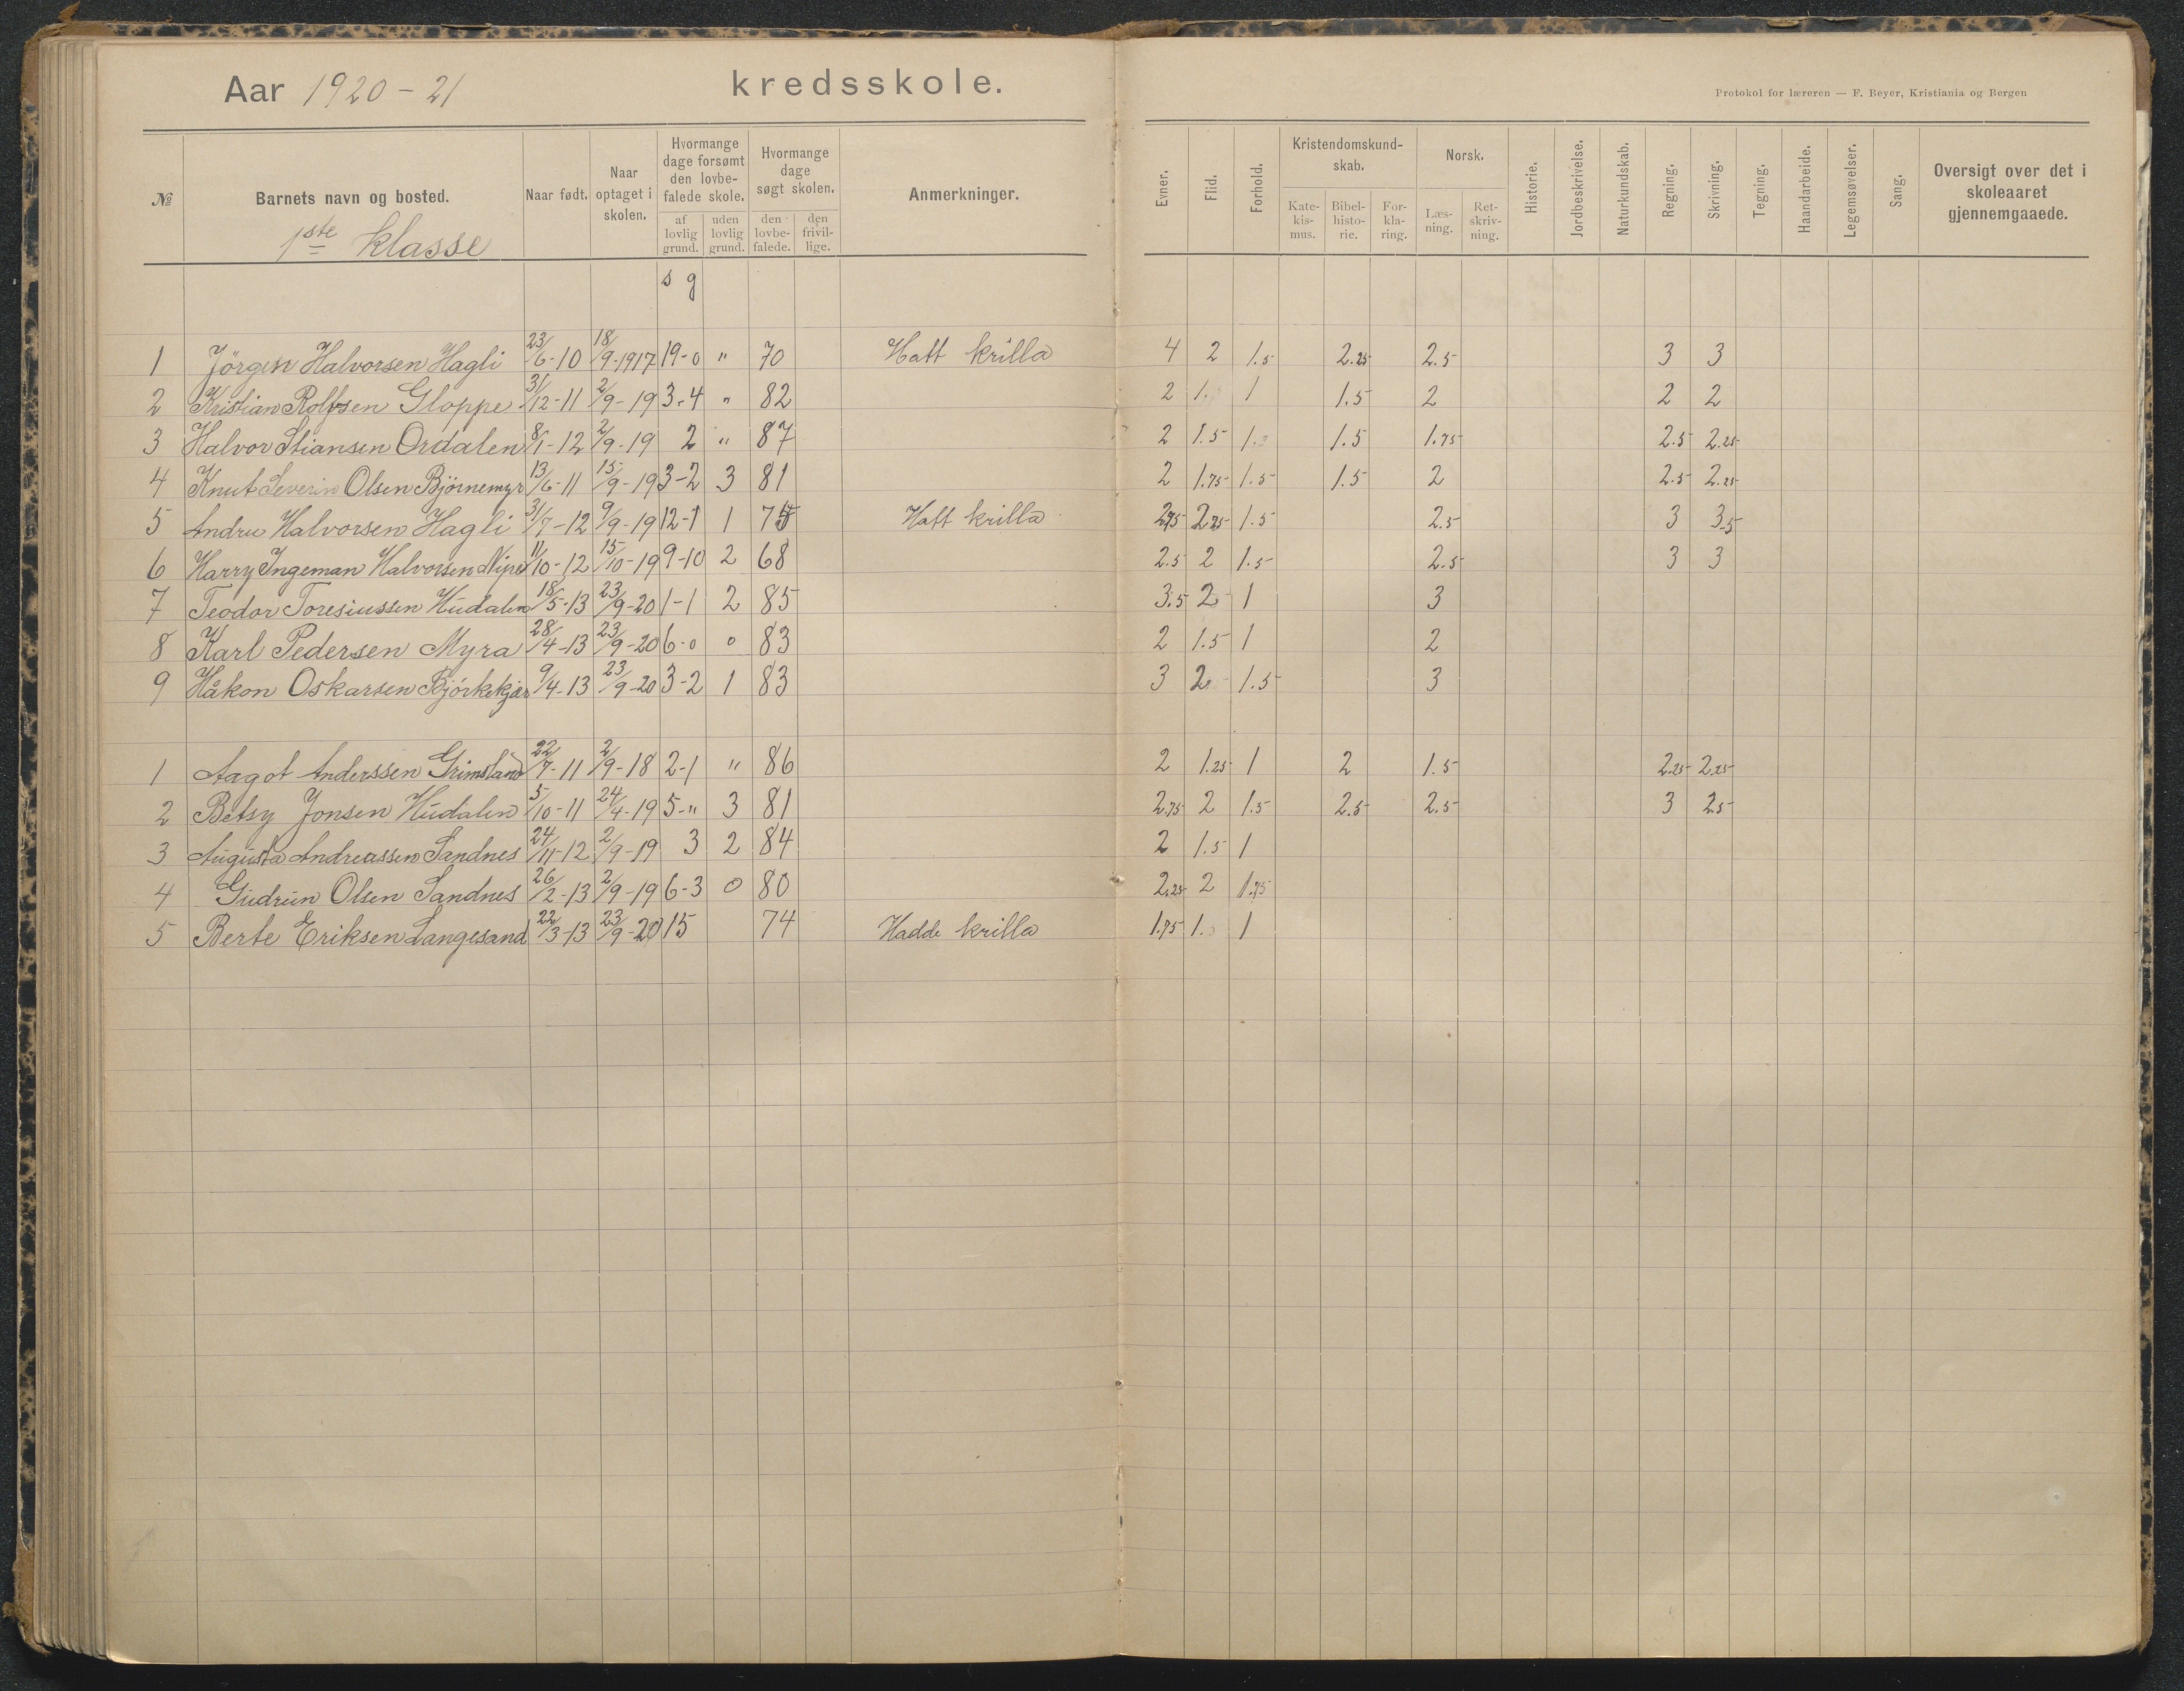 Aar 1920-21 kredsskole.
Protokol for læreren — F. Beyer, Kristiania og Bergen
№ Barnets navn og bosted. Naar født. Naar optaget i skolen. Hvormange dage forsømt den lovbefalede skole. af lovlig grund. uden lovlig grund. Hvormange dage søgt skolen. den lovbefalede. den frivillige. Anmerkninger. Evner. Flid. Forhold. Kristendomskundskab. Katekismus. Bibelhistorie. Forklaring. Norsk. Læsning. Retskrivning. Historie. Jordbeskrivelse. Naturkundskab. Regning. Skrivning. Tegning. Haandarbeide. Legemsøvelser. Sang. Oversigt over det i skoleaaret gjennemgaaede.
1ste klasse
s g
1 Jörgen Halvorsen Hagli 23/6-10 18/9-1917 19-0 " 70 Hatt krilla 4 2 1.5 2.25 2.5 3 3
2 Kristian Rolfsen Gloppe 31/12-11 2/9-19 3-4 " 82 2 1. 1 1.5 2 2 2
3 Halvor Stiansen Ordalen 8/1-12 2/9-19 2 " 87 2 1.5 1. 1.5 1.75 2.5 2.25
4 Knut Severin Olsen Björnemyr 13/6-11 15/9-19 3-2 3 81 2 1.75 1.5 1.5 2 2.5 2.25
5 Andru Halvorsen Hagli 31/7-12 9/9-19 12-1 1 75 Hatt krilla 2.75 2.25 1.5 2.5 3 3.5
6 Harry Ingeman Halvorsen Nipe 11/10-12 15/10-19 9-10 2 68 2.5 2 1.5 2.5 3 3
7 Teodor Toresiussen Hudalen 18/5-13 23/9-20 1-1 2 85 3.5 2 1 3
8 Karl Pedersen Myra 28/4-13 23/9-20 6-0 0 83 2 1.5 1 2
9 Håkon Oskarsen Björkekjær 9/4-13 23/9-20 3-2 1 83 3 2 1.5 3
1 Aagot Anderssen Grimsland 22/7-11 2/9-18 2-1 " 86 2 1.25 1 2 1.5 2.25 2.25
2 Betsy Jonsen Hudalen 5/10-11 24/4-19 5-" 3 81 2.75 2 1.5 2.5 2.5 3 2.5
3 Augusta Andreassen Sandnes 24/11-12 2/9-19 3 2 84 2 1.5 1
4 Gudrun Olsen Sandnes 26/2-13 2/9-19 6-3 0 80 2.25 2 1.75
5 Berte Eriksen Langesand 22/3-13 23/9-20 15 74 Hadde krilla 1.75 1. 1